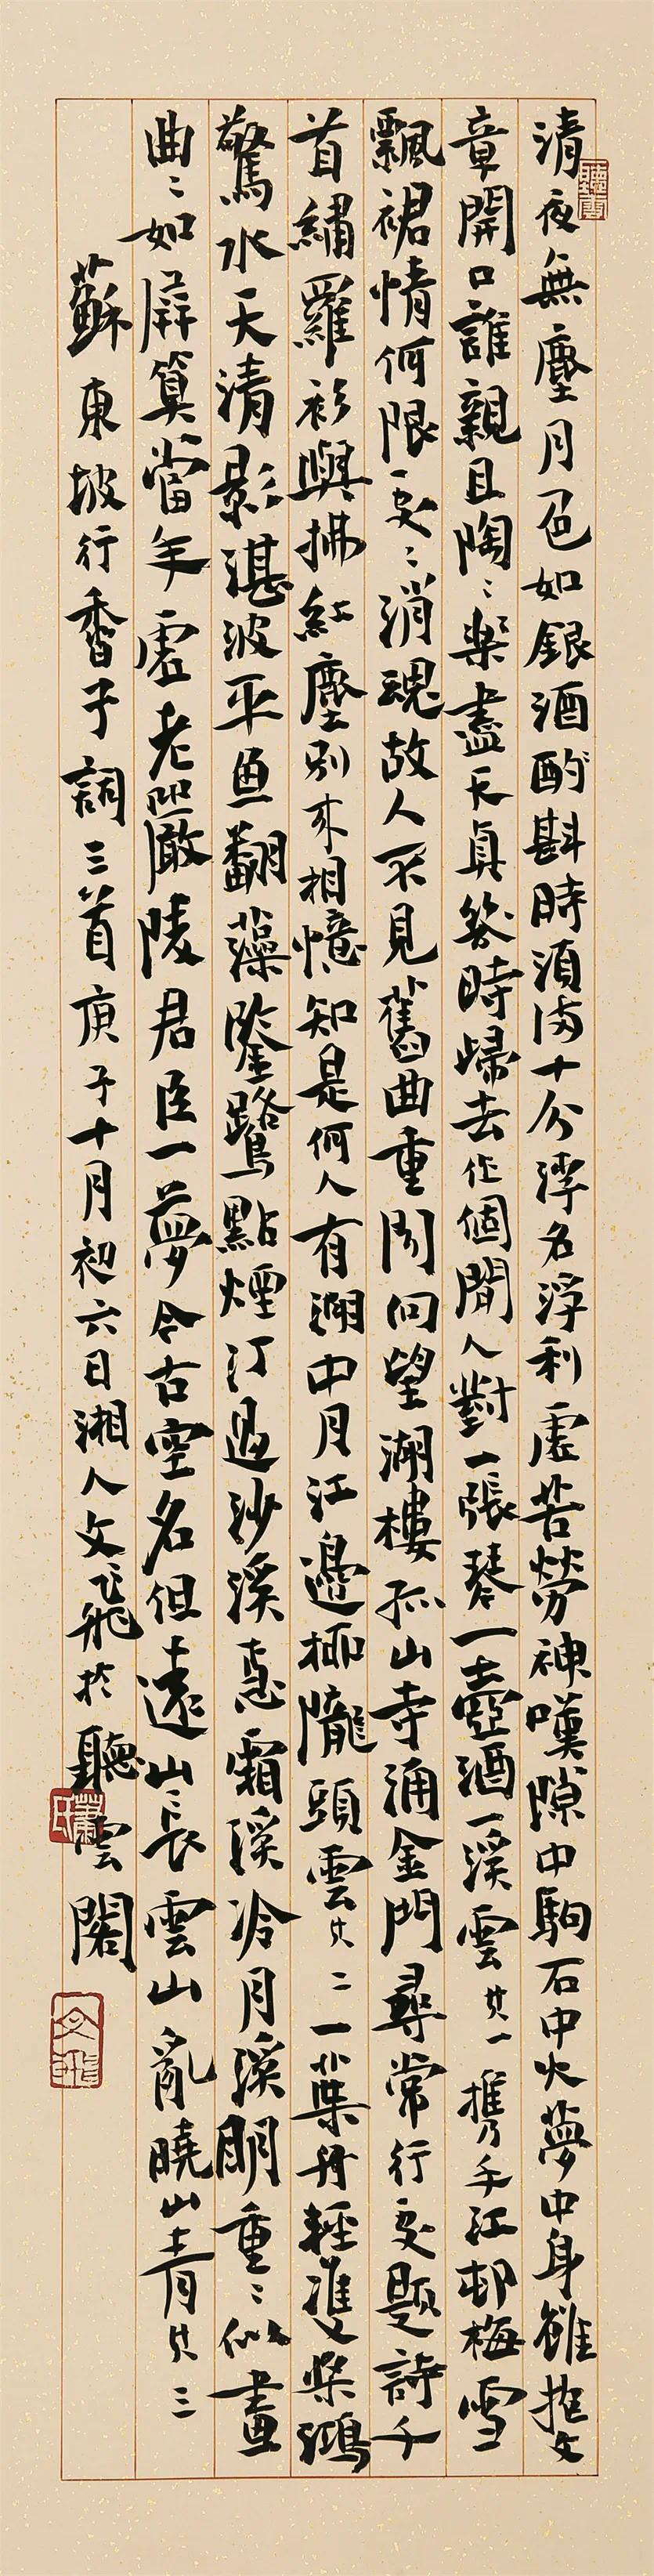 清夜無塵月色如銀酒酌斟時須滿十分浮名浮利虛苦勞神嘆隙中駒石中火夢中身雖抱文
章開口誰親且陶〻樂盡天真幾時歸去作個閒人對一張琴一壺酒一溪雲其一攜手江邨梅雪
飄裙情何限處〻消魂故人不見舊曲重聞向望湖樓孤山寺涌金門尋常行處題詩千
首繡羅衫與拂紅塵別來相憶知是何人有湖中月江邊柳隴頭雲其二一葉舟輕雙槳鴻
驚水天清影湛波平魚翻藻鑒鷺點煙汀過沙溪急霜溪冷月溪明重〻似畫
曲〻如屏算當年虛老嚴陵君臣一夢今古空名但遠山〻長雲山亂曉山青其三
蘇東坡行香子詞三首庚子十月初六日湘人文飛於聽雲閣
聽雲
蕭氏
文飛